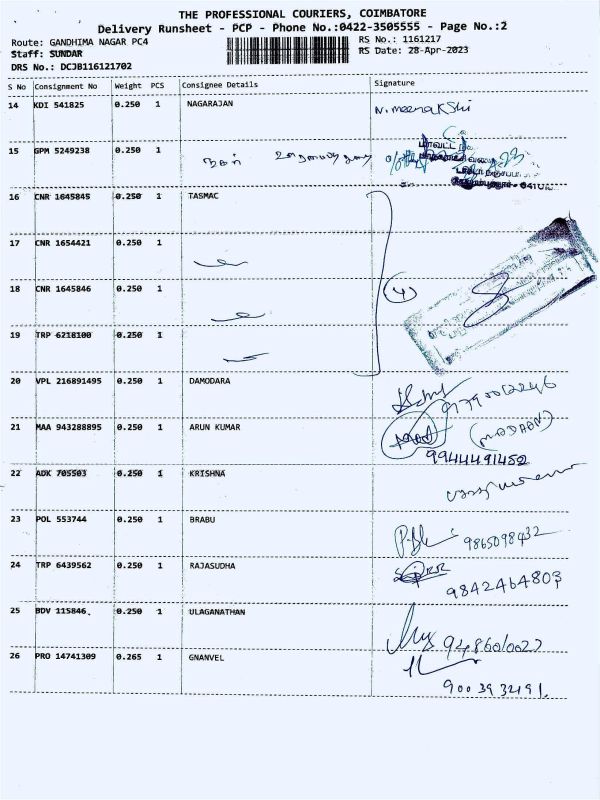 THE PROFESSIONAL COURIERS, COIMBATORE
Delivery Runsheet - PCP - Phone No.:0422-3505555 - Page No.:2
Route: GANDHIMA NAGAR PC4 RS No.: 1161217
Staff: SUNDAR RS Date: 28-Apr-2023
DRS No.: DCJB116121702
S No Consignment No Weight PCS Consignee Details Signature
14 KDI 541825 0.250 1 NAGARAJAN N. meenakshi
15 GPM 5249238 0.250 1
16 CNR 1645845 0.250 1 TASMAC
17 CNR 1654421 0.250 1
18 CNR 1645846 0.250 1 4
19 TRP 6218100 0.250 1
20 VPL 216891495 0.250 1 DAMODARA
21 MAA 943288895 0.250 1 ARUN KUMAR
9944491452
22 ADK 705503 0.250 1 KRISHNA
23 POL 553744 0.250 1 BRABU 9865098432
24 TRP 6439562 0.250 1 RAJASUDHA
9842464803
25 BDV 115846 0.250 1 ULAGANATHAN
26 PRO 14741309 0.265 1 GNANVEL